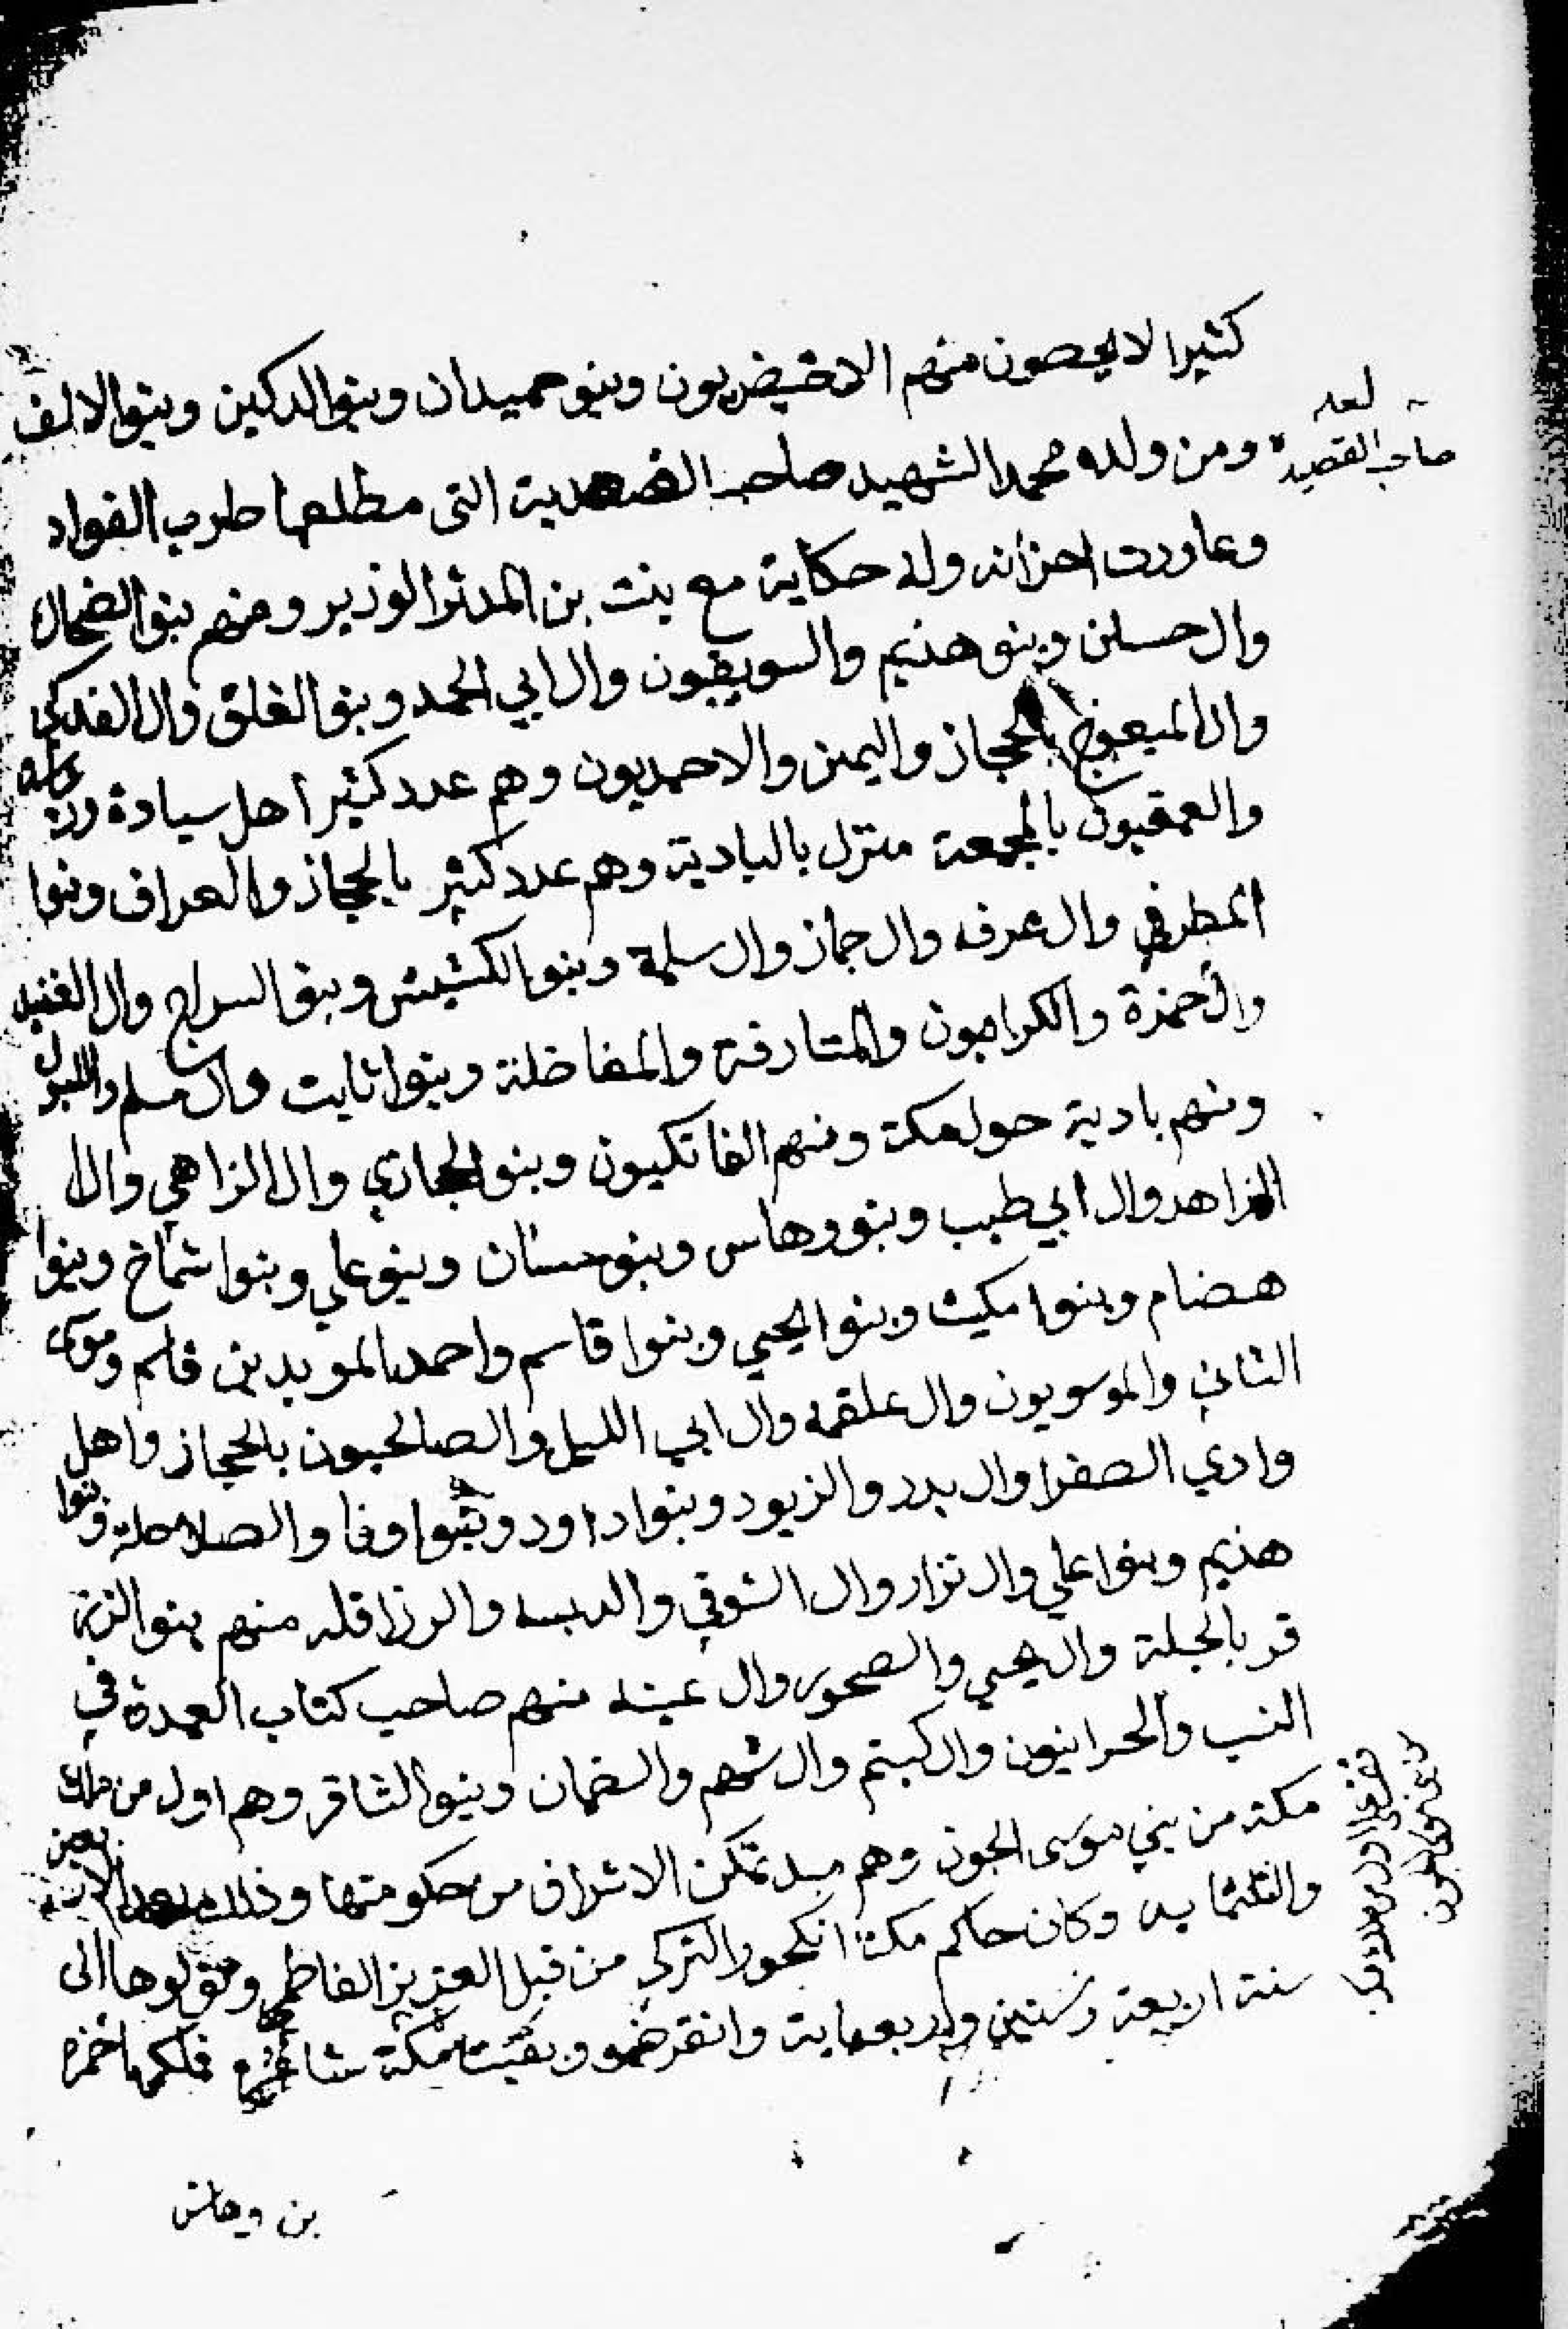 كثيرا لا يحصون منهم الاخيضريون وبنو حميدان وبنوا الدكين وبنوا الالف
ومن ولده محمد الشهيد صاحب التى مطلعها طرب الفواد
لعله
صاحب القصيدة
وعاودت احزانه وله حكاية مع بنت بن المدثر الوزير ومنهم بنوا الضحاك
وال حسن وبنو هذيم والسويقيون وال ابي الحمد وبنو الغلق وال الفدكي
وال المبعوج بالحجاز واليمن والاحمديون وهم عدد كثير أهل سيادة ورياسة
والعمقيون بالمجمعة منزل بالبادية وهم عدد كثير بالحجاز والعراق وبنوا
المطرفي وال عرفه وال جماز وال سلمة وبنوا الكشيش وبنو السراج وال الفنيد
وال حمزة والكراميون والمتارفة والمفاضلة وبنوا ثابت وال مسلم
ومنهم بادية حول مكة ومنهم الفاتكيون وبنو الحجازي وال الزاهي وال
المزاهد وال ابي طيب وبنو وهاس وبنو حسان وبنو علي وبنوا شماخ وبنوا
هضام وبنوا مكيث وبنوا يحيى وبنوا قاسم واحمد المويد بن قاسم وموسى
الثاني والموسويون وال علقمه وال ابي الليل والصالحيون بالحجاز واهل
وادي الصفرا وال بدر والزيود وبنوا داود وبنوا وفا والصلاصله وبنوا
هذيم وبنوا علي وال نزار وال الشوقي والدبسه والرزاقله منهم بنوا
قر بالحلة وال يحيى والصحور وال عنبه منهم صاحب كتاب العمدة في
النسب والحرانيون وال كبتم وال شهم والضمان وبنوا لشاقر وهم اول من ملك
مكة من بني موسى الجون وهم مبد تمكن الاشراف من حكومتها وذلك بعد الاربعين
والثلثمايه وكان حاكم مكة انكحور التركي من قبل العزيز الفاطمي وتولوها الى
سنة اربعة وستين واربعماية وانقرضو وبقيت مكة شاغره فملكها حمزه
بن وهاس